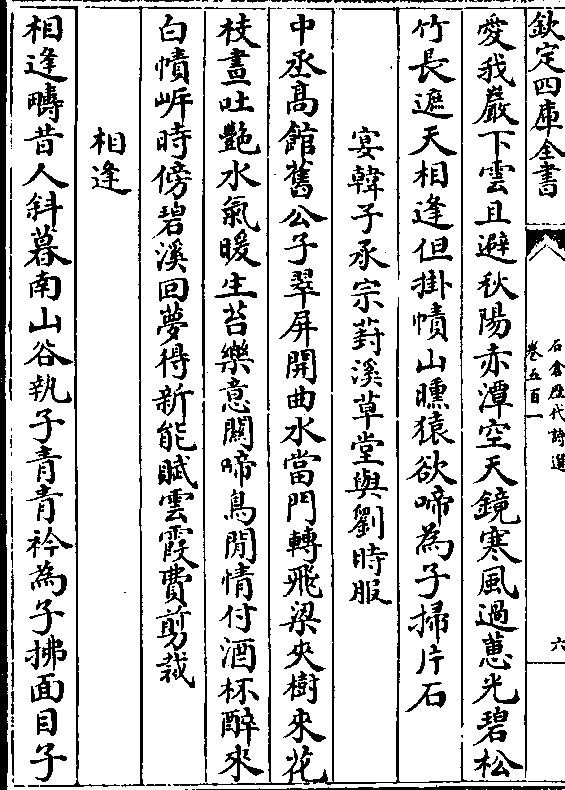 欽定四庫全書
石倉歷代詩選
卷五百一
六
愛我巖下雲且避秋陽赤潭空天鏡寒風過蔥光碧松
竹長遮天相逢但掛幘山曛猿欲啼為子掃片石
宴韓子承宗葑溪草堂與劉時服
中丞高館舊公子翠屏開曲水當門轉飛梁夾樹來花
枝晝吐艷水氣暖生苔樂意關啼鳥閒情付酒杯醉來
白幘岸時傍碧溪回夢得新能賦雲霞費剪裁
相逢
相逢疇昔人斜暮南山谷執子青青衿為子拂面目子